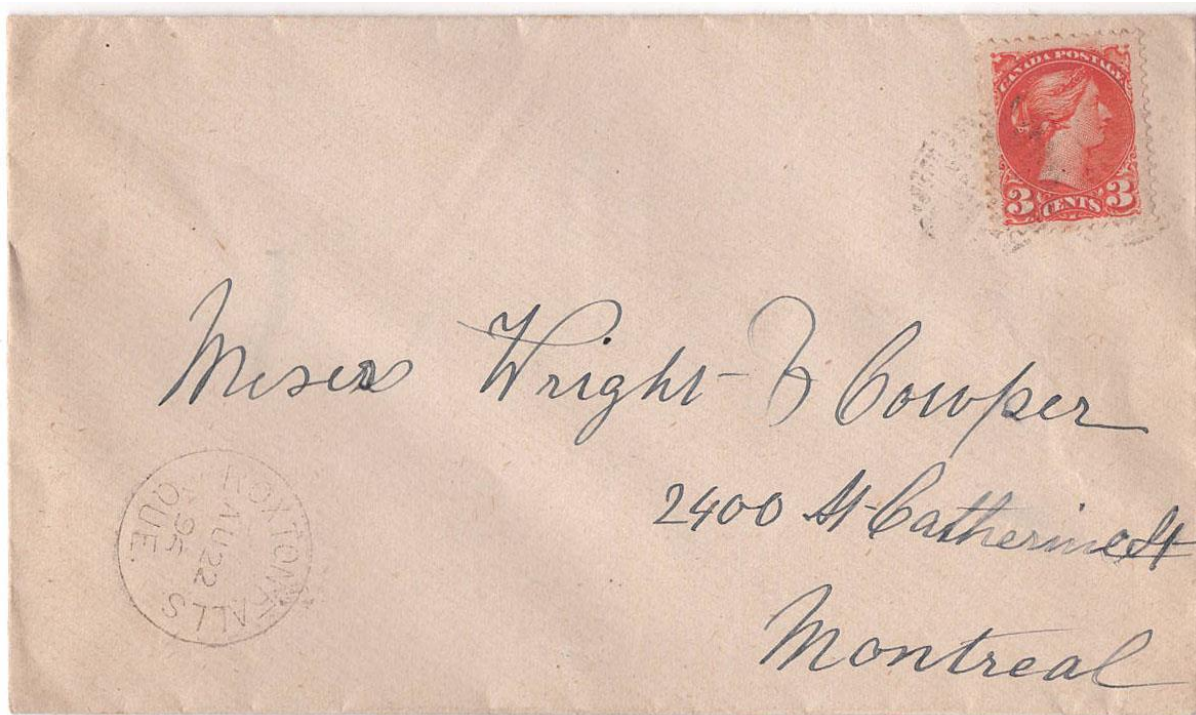 CANADA POSTAGE
3 CENTS 3
Messrs Wright & Cowper
2400 St Catherine St
Montreal
ROXTON FALLS
AU 22
95
QUE.